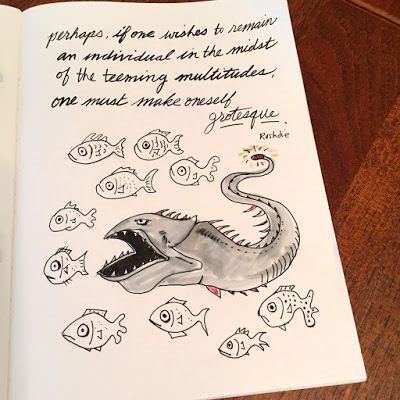 perhaps, if one wishes to remain
an individual in the midst
of the teeming multitudes,
one must make oneself
grotesque.
Rushdie